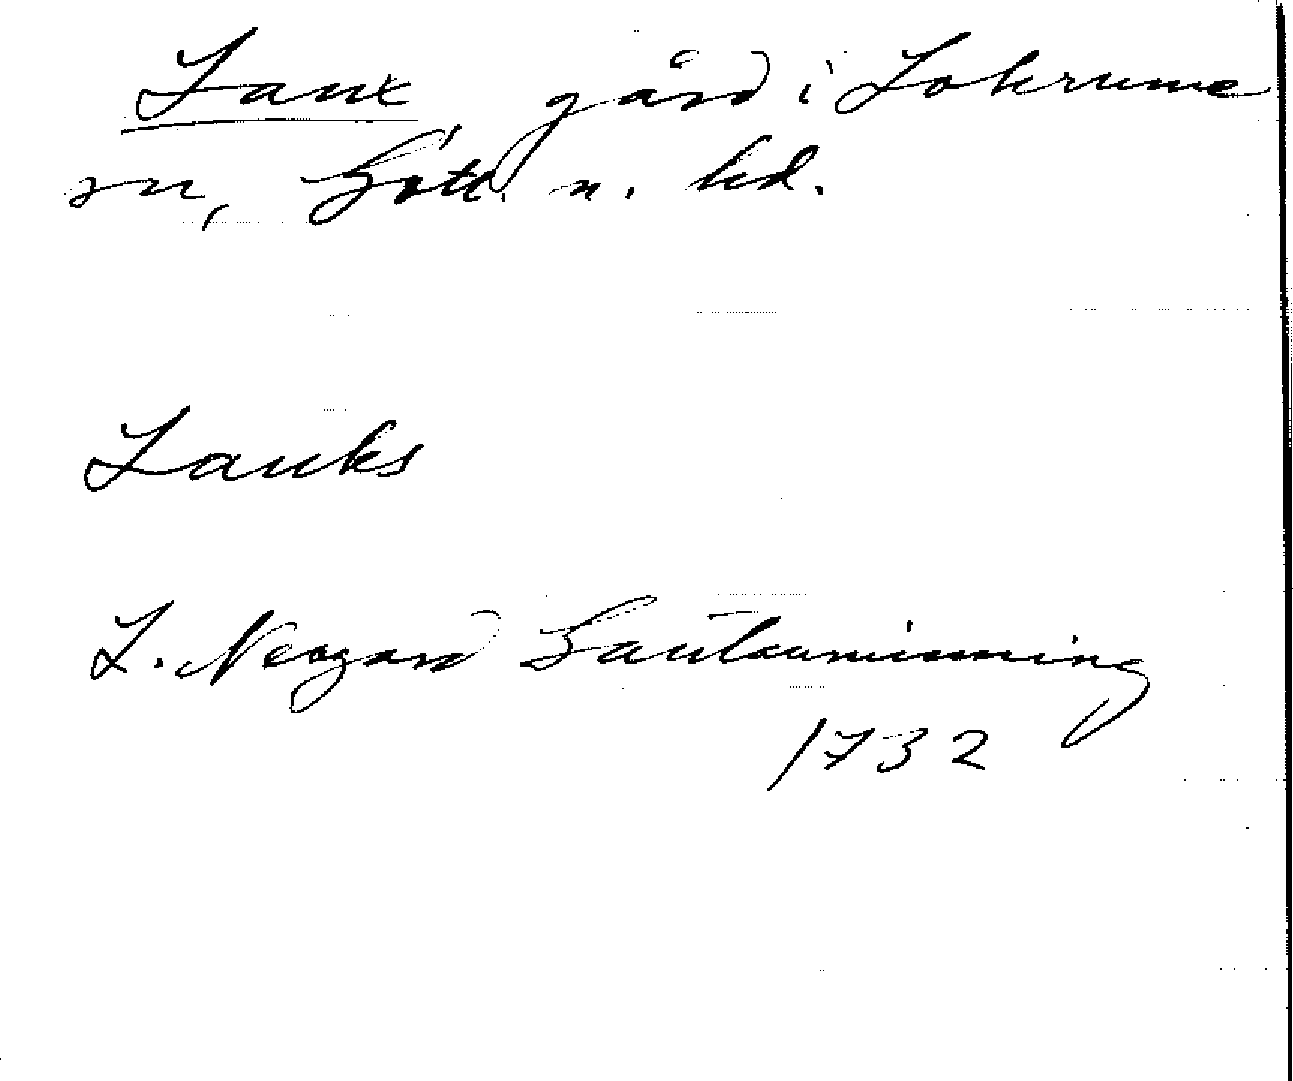 Laux gård i Lokrume
sn, Gotl. n. hd.
Lauks
L. Neogard Gautauminning
1732